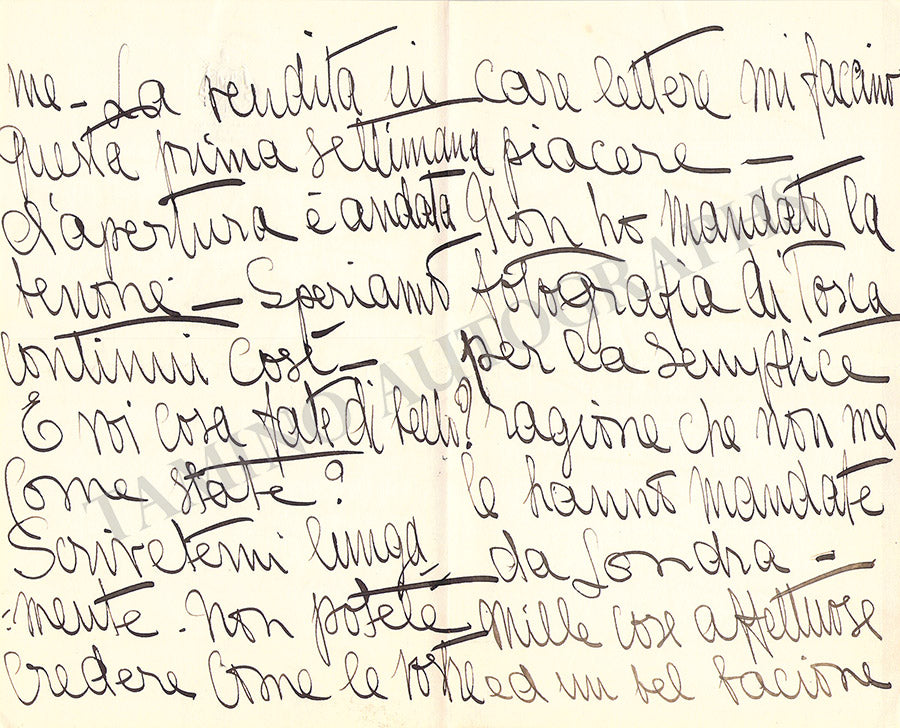 me - La vendita in
questa prima settimana
d'apertura è andata
benone - Speriamo
continui così -
E voi cosa fate di bello?
Come state?
Scrivetemi lunga
=mente - non potete
credere come le vostre
care lettere mi faccino
piacere -
Non ho mandato la
fotografia di Tosca
per la semplice
ragione che non me
le hanno mandate
da Londra -
Mille cose affettuose
ed un bel bacione
TAMINO AUTOGRAPHS